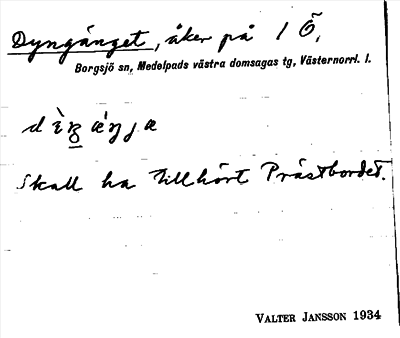 Dyngänget, åker på 1 Ö,
Borgsjö sn, Medelpads västra domsagas tg, Västernorrl. l.
Skall ha tillhört Prästbordet.
VALTER JANSSON 1934